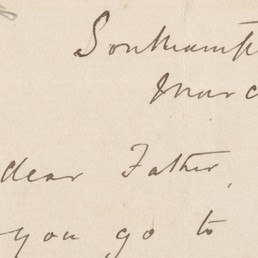 Southampt
Marc
dear Father,
you go to